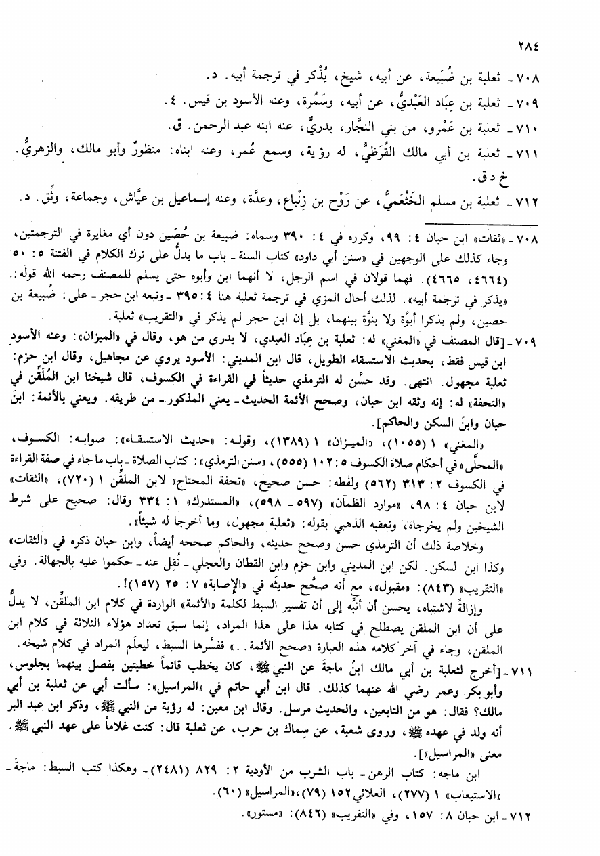 ٢٨٤
٧٠٨- ثعلبة بن ضُبَيعة، عن أبيه، شيخ، يُذْكر في ترجمة أبيه. د.
٧٠٩- ثعلبة بن عِبَاد العَبْديُّ، عن أبيه، وسَمُرة، وعنه الأسود بن قيس. ٤.
٧١٠- ثعلبة بن عَمْرو، من بني النَّجار، بدريٌّ، عنه ابنه عبد الرحمن. ق.
٧١١- ثعلبة بن أبي مالك القُرَظيُّ، له رؤية، وسمع عُمر، وعنه ابناه: منظورٌ وأبو مالك، والزهريُّ.
خ د ق.
٧١٢- ثعلبة بن مسلم الخَثْعَميُّ، عن رَوْح بن زِنْباع، وعدَّة، وعنه إسماعيل بن عيَّاش، وجماعة، وثِّق. د.
٧٠٨- «ثقات» ابن حبان ٤: ٩٩، وكرره في ٤: ٣٩٠ وسماه: ضبيعة بن حُصَين دون أي مغايرة في الترجمتين،
وجاء كذلك على الوجهين في «سنن أبي داود» كتاب السنة - باب ما يدلُّ على ترك الكلام في الفتنة ٥: ٥٠
(٤٦٦٤، ٤٦٦٥). فهما قولان في اسم الرجل، لا أنهما ابن وأبوه حتى يسلم للمصنف رحمه الله قوله:
«يذكر في ترجمة أبيه». لذلك أحال المزي في ترجمة ثعلبة هنا ٤: ٣٩٥ - وتبعه ابن حجر - على: ضُبيعة بن
حصين، ولم يذكرا أبوَّة ولا بنوَّة بينهما، بل إن ابن حجر لم يذكر في «التقريب» ثعلبة.
٧٠٩- [قال المصنف في «المغني» له: ثعلبة بن عِبَاد العبدي، لا يدرى من هو، وقال في «الميزان»: وعنه الأسود
ابن قيس فقط، بحديث الاستسقاء الطويل، قال ابن المديني: الأسود يروي عن مجاهيل، وقال ابن حزم:
ثعلبة مجهول. انتهى. وقد حسَّن له الترمذي حديثاً في القراءة في الكسوف، قال شيخنا ابن المُلَقِّن في
«التحفة» له: إنه وثقه ابن حبان، وصحح الأئمة الحديث - يعني المذكور - من طريقه. ويعني بالأئمة: ابن
حبان وابن السكن والحاكم].
«المغني» ١ (١٠٥٥)، «الميزان» ١ (١٣٨٩)، وقوله: «حديث الاستسقاء»: صوابه: الكسوف،
«المحلَّى» في أحكام صلاة الكسوف ٥: ١٠٢ (٥٥٥)، «سنن الترمذي»: كتاب الصلاة - باب ماجاء في صفة القراءة
في الكسوف ٢: ٣١٣ (٥٦٢) ولفظه: حسن صحيح، «تحفة المحتاج» لابن الملقن ١ (٧٢٠)، «الثقات»
لابن حبان ٤: ٩٨، «موارد الظمآن» (٥٩٧ - ٥٩٨)، «المستدرك» ١: ٣٣٤ وقال: صحيح على شرط
الشيخين ولم يخرجاه، وتعقبه الذهبي بقوله: «ثعلبة مجهول، وما أخرجا له شيئاً».
وخلاصة ذلك أن الترمذي حسن وصحح حديثه، والحاكم صححه أيضاً، وابن حبان ذكره في «الثقات»
وكذا ابن السكن. لكن ابن المديني وابن حزم وابن القطان والعجلي - نُقِل عنه - حكموا عليه بالجهالة. وفي
«التقريب» (٨٤٣): «مقبول»، مع أنه صحَّح حديثَه في «الإصابة» ٧: ٢٥ (١٥٧)!.
وإزالةً لاشتباه، يحسن أن أنبِّه إلى أن تفسير السبط لكلمة «الأئمة» الواردة في كلام ابن الملقِّن، لا يدلُّ
على أن ابن الملقن يصطلح في كتابه هذا على هذا المراد، إنما سبق تعداد هؤلاء الثلاثة في كلام ابن
الملقن، وجاء في آخر كلامه هذه العبارة «صحح الأئمة..» ففسَّرها السبط، ليعلَم المراد في كلام شيخه.
٧١١- [أخرج لثعلبة بن أبي مالك ابنُ ماجهْ عن النبي ﷺ، كان يخطب قائماً خطبتين يفصل بينهما بجلوس،
وأبو بكر وعمر رضي الله عنهما كذلك. قال ابن أبي حاتم في «المراسيل»: سألت أبي عن ثعلبة بن أبي
مالك؟ فقال: هو من التابعين، والحديث مرسل. وقال ابن معين: له رؤية من النبي ﷺ، وذكر ابن عبد البر
أنه ولد في عهده ﷺ، وروى شعبة، عن سِماك بن حرب، عن ثعلبة قال: كنت غلاماً على عهد النبي ﷺ.
معنى «المراسيل»].
ابن ماجه: كتاب الرهن - باب الشرب من الأودية ٢: ٨٢٩ (٢٤٨١) - وهكذا كتب السبط: ماجهْ -
«الاستيعاب» ١ (٢٧٧)، العلائي ١٥٢ (٧٩)، «المراسيل» (٦٠).
٧١٢- ابن حبان ٨: ١٥٧، وفي «التقريب» (٨٤٦): «مستور».